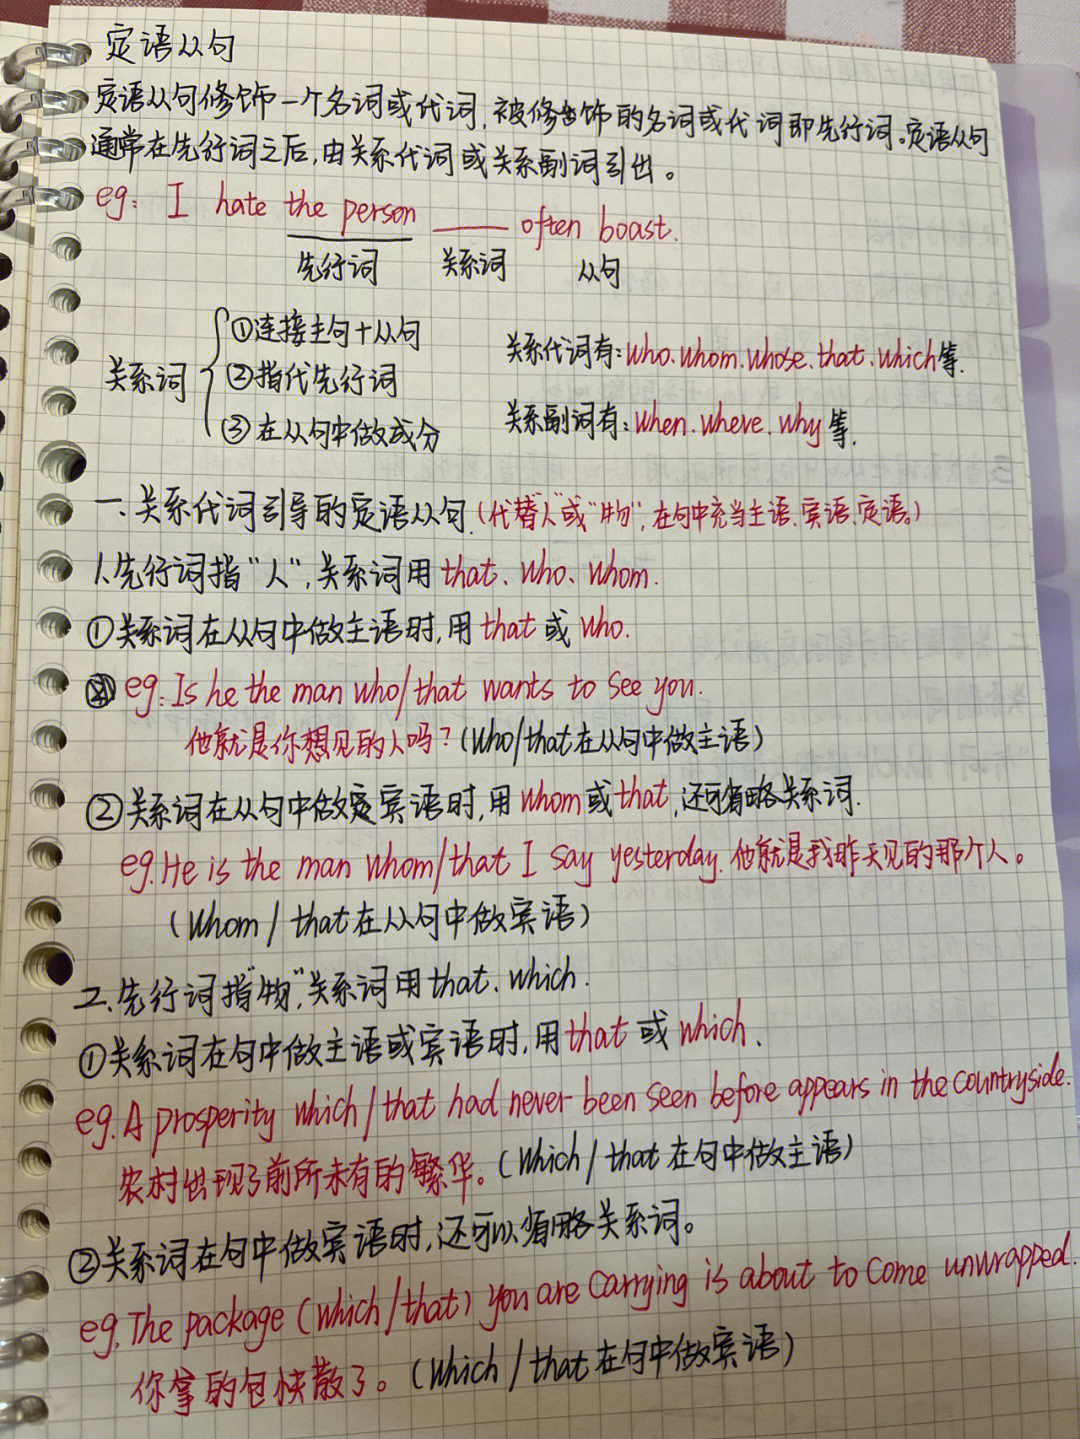 定语从句
定语从句修饰一个名词或代词,被修饰的名词或代词即先行词。定语从句
通常在先行词之后,由关系代词或关系副词引出。
eg: I hate the person ____ often boast.
先行词 关系词 从句
关系词
①连接主句+从句
②指代先行词
③在从句中做成分
关系代词有:who.whom.whose.that.which等.
关系副词有:when.where.why等.
一.关系代词引导的定语从句.(代替"人"或"物",在句中充当主语.宾语.定语。)
1.先行词指"人",关系词用that、who、whom.
①关系词在从句中做主语时,用that或who.
eg:Is he the man who/that wants to see you.
他就是你想见的人吗?(who/that在从句中做主语)
②关系词在从句中做宾语时,用whom或that,还可省略关系词.
eg.He is the man whom/that I say yesterday.他就是我昨天见的那个人。
(whom/that在从句中做宾语)
二.先行词指"物",关系词用that、which.
①关系词在句中做主语或宾语时,用that或which.
eg.A prosperity which/that had never been seen before appears in the countryside.
农村出现了前所未有的繁华。(which/that在句中做主语)
②关系词在句中做宾语时,还可以省略关系词。
eg.The package (which/that) you are carrying is about to come unwrapped.
你拿的包快散了。(which/that在句中做宾语)